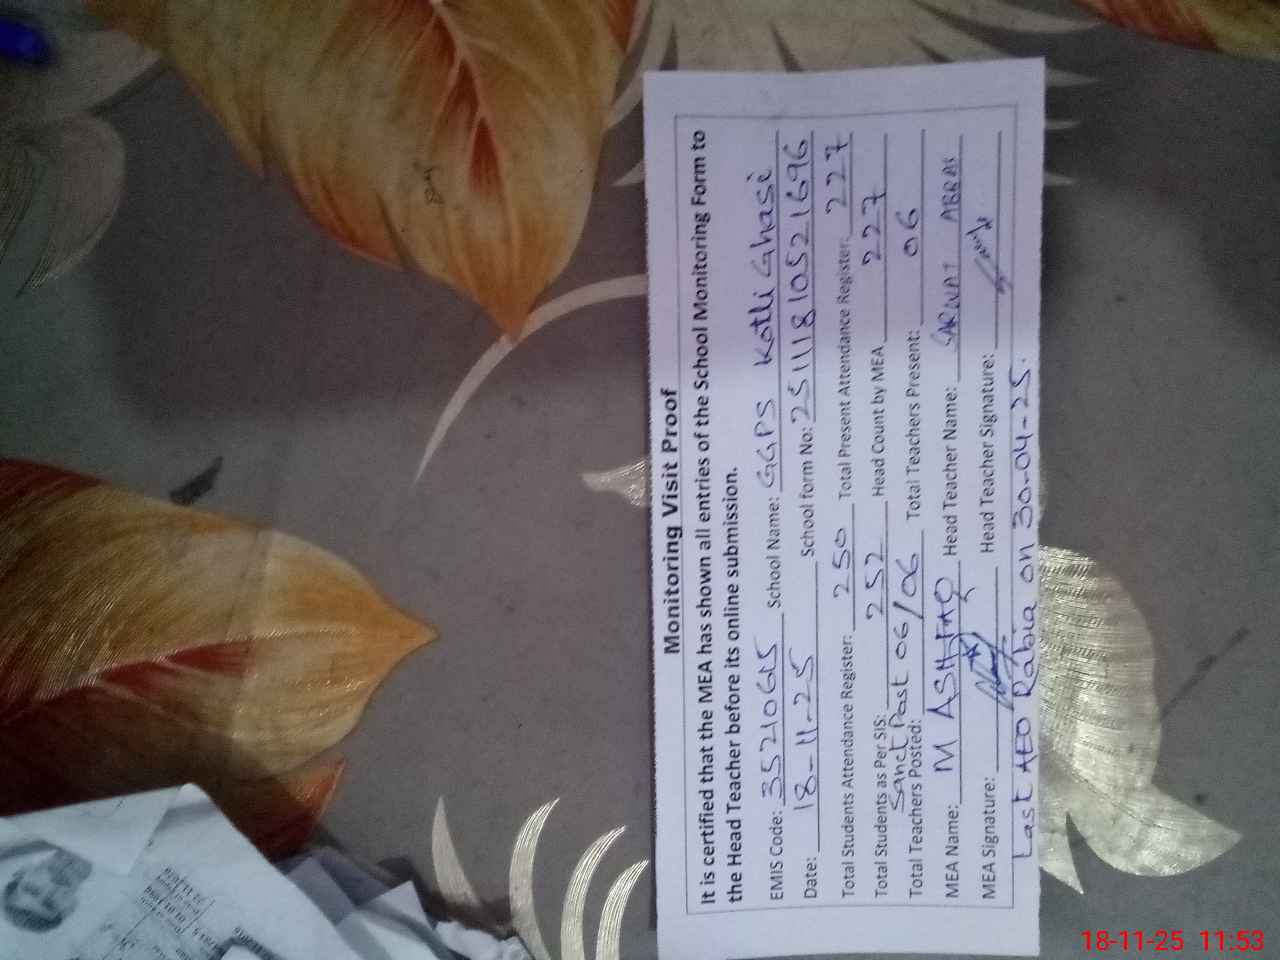 Monitoring Visit Proof
It is certified that the MEA has shown all entries of the School Monitoring Form to
the Head Teacher before its online submission.
EMIS Code: 35210615 School Name: GGPS Kotli Ghasi
Date: 18-11-25 School form No: 25111810521696
Total Students Attendance Register: 250 Total Present Attendance Register: 227
Total Students as Per SIS: 252 Head Count by MEA 227
Sanct Post 06/06
Total Teachers Posted: Total Teachers Present: 06
MEA Name: M ASHFAQ Head Teacher Name: SARWAT ABBAS
MEA Signature: Head Teacher Signature:
Last AEO Rabia on 30-04-25.
18-11-25 11:53